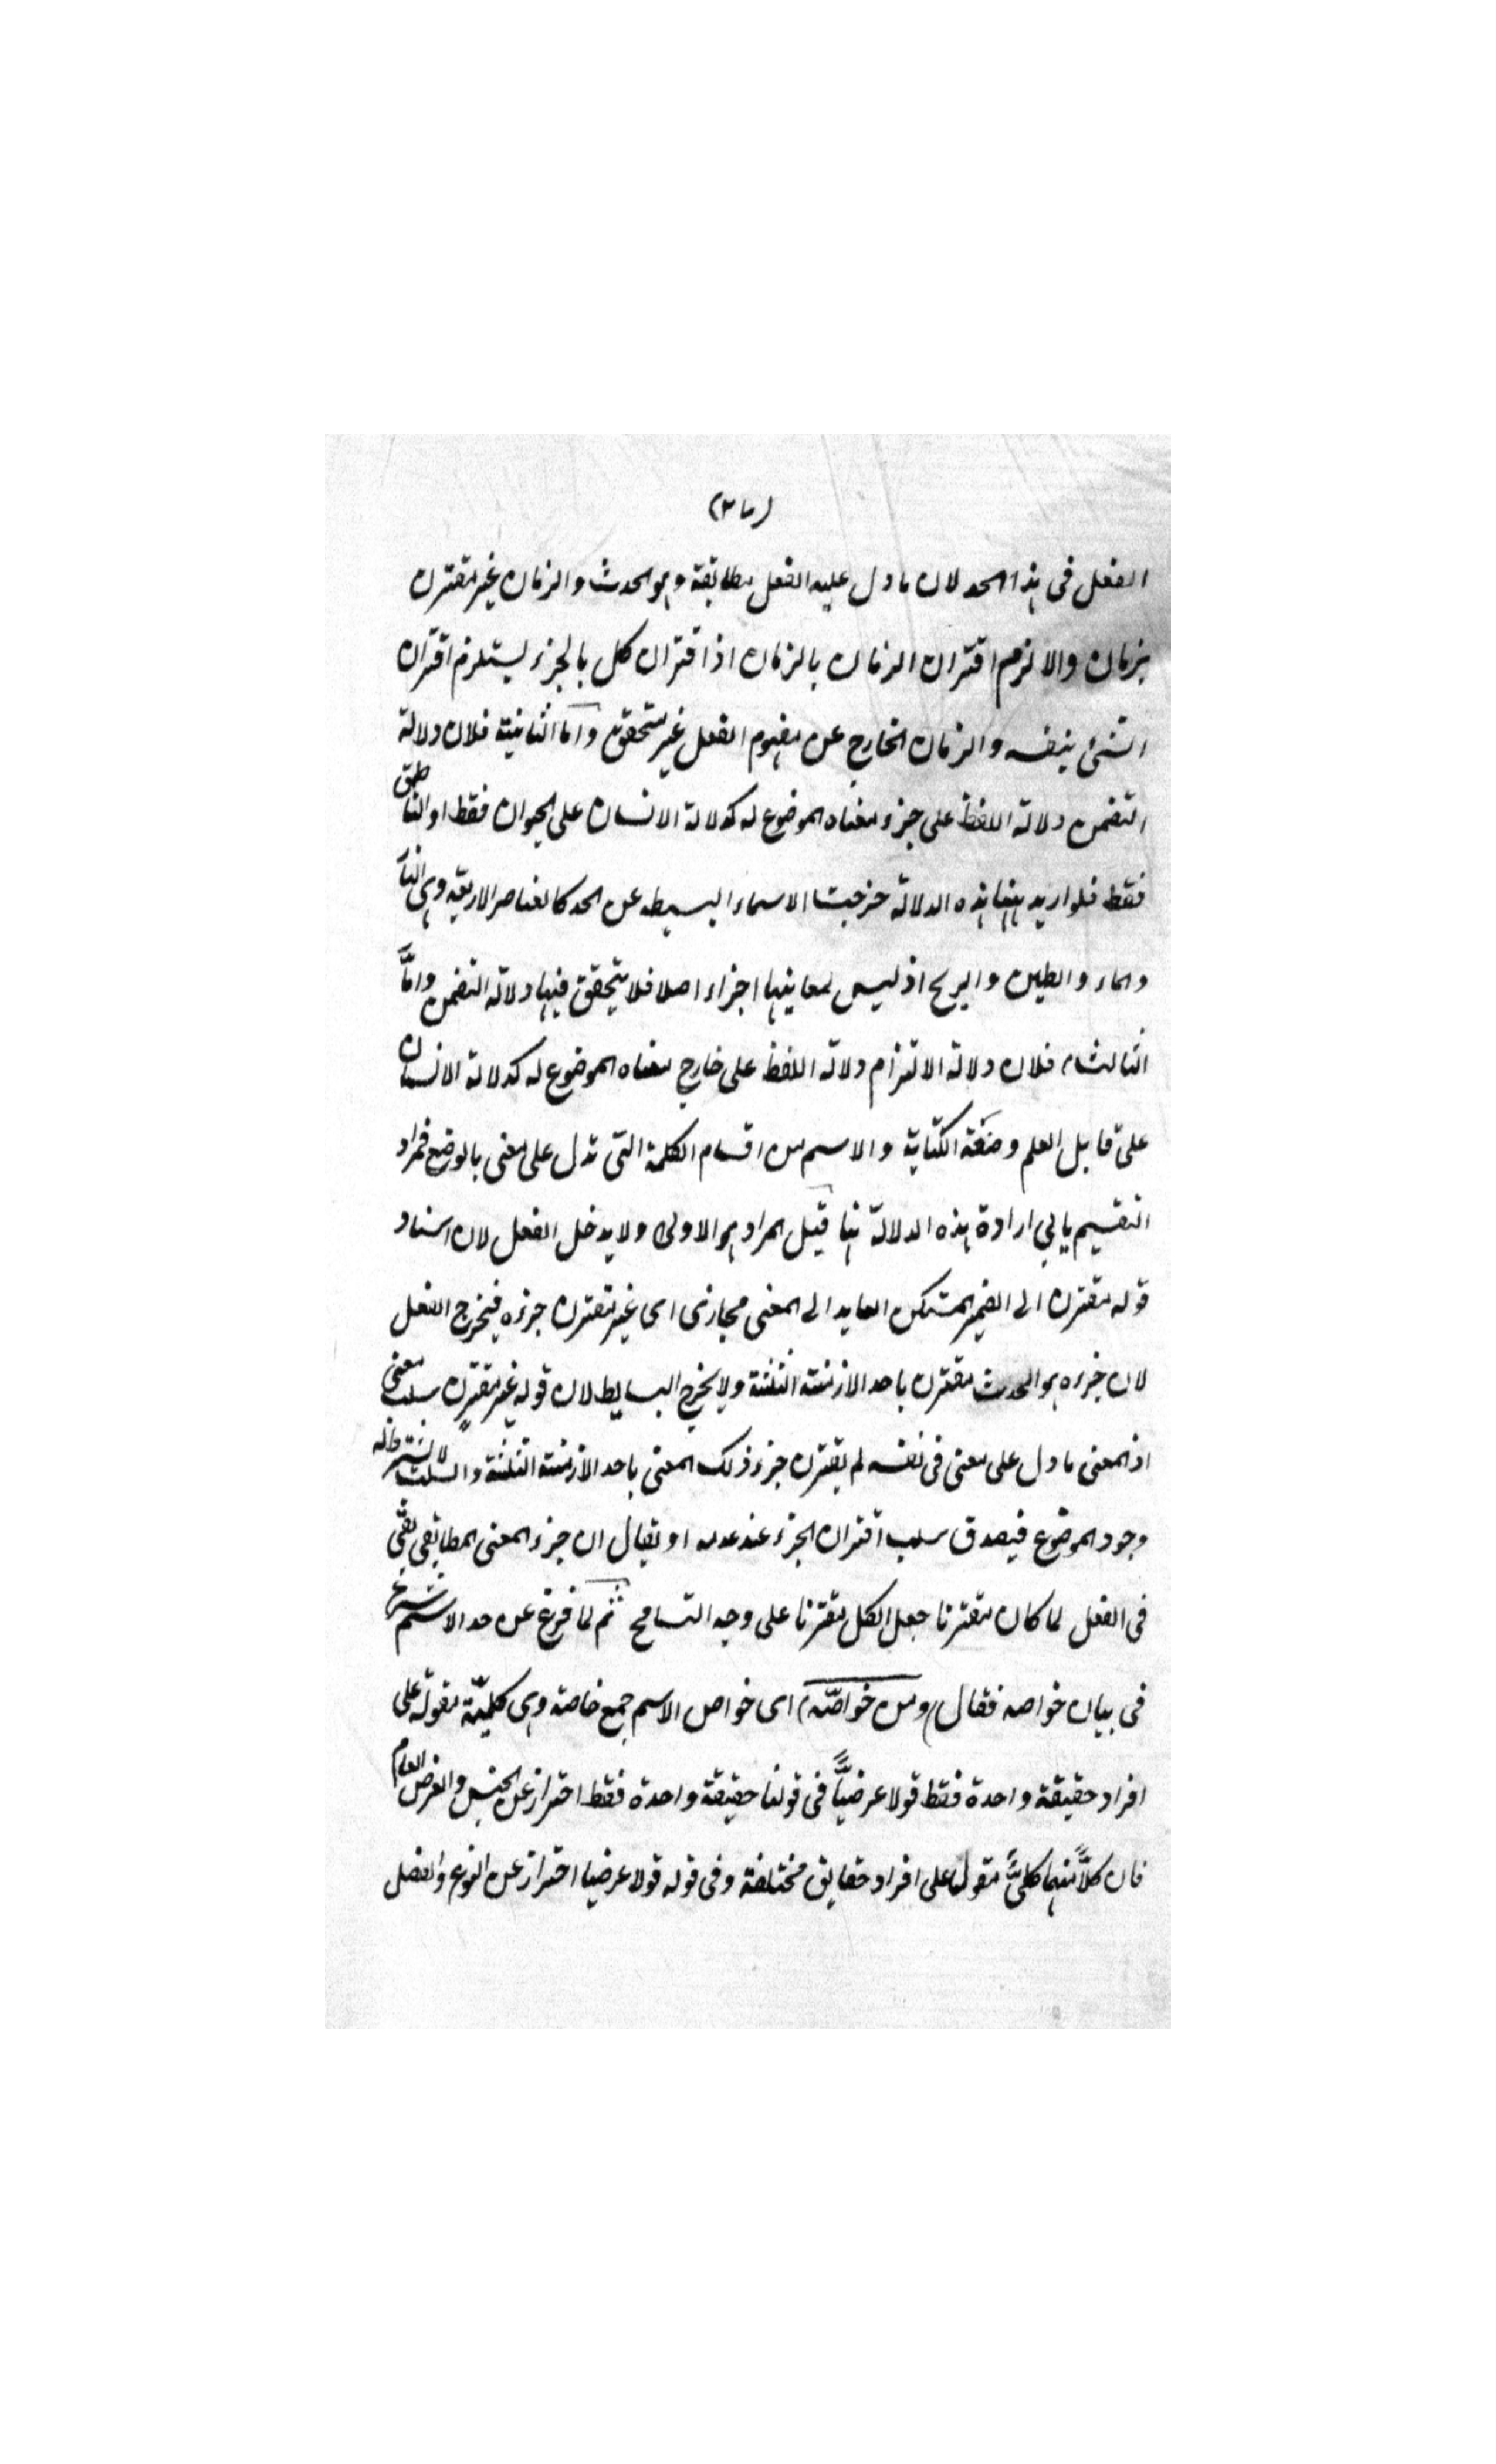 الفعل فى هذا الحد لان ما دل عليه الفعل مطابقة وهو الحدث والزمان غير مقترن
بزمان والا لزم اقتران الزمان بالزمان اذ اقتران كل بالجزء يستلزم اقتران
الشئ بنفسه والزمان الخارج عن مفهوم الفعل غير متحقق واما الثانية فلان دلالة
التضمن دلالة اللفظ على جزء معناه الموضوع له كدلالة الانسان على الحيوان فقط او الناطق
فقط فلو اريد ههنا هذه الدلالة خرجت الاسماء البسيطه عن الحد كالعناصر الاربعه وهى النار
والماء والطين والريح اذ ليس لمعانيها اجزاء اصلا فلا يتحقق فيها دلالة التضمن واما
الثالثة فلان دلالة الالتزام دلالة اللفظ على خارج معناه الموضوع له كدلالة الانسان
على قابل العلم وصنعة الكتابة والاسم من اقسام الكلمة التى تدل على معنى بالوضع فمراد
التقسيم يابى ارادة هذه الدلالة هنا قيل المراد هو الاولى ولا يدخل الفعل لان اسناد
قوله مقترن الى الضمير المستكن العايد الى المعنى مجازى اى غير مقترن جزءه فيخرج الفعل
لان جزءه هو الحدث مقترن باحد الازمنة الثلثة ولا يخرج البسايط لان قوله غير مقترن سلب معنى
اذ المعنى ما دل على معنى فى نفسه لم يقترن جزء ذلك المعنى باحد الازمنة الثلثة والسلب لا يشترط له
وجود الموضوع فيصدق سلب اقتران الجزء عند عدمه او يقال ان جزء المعنى المطابقى
فى الفعل لما كان مقترنا جعل الكل مقترنا على وجه التسامح ثم لما فرغ عن حد الاسم شرع
فى بيان خواصه فقال (ومن خواصّه) اى خواص الاسم جمع خاصة وهى كليّة مقولة على
افراد حقيقة واحدة فقط قولا عرضيّاً فى قولنا حقيقة واحدة فقط احتراز عن الجنس والعرض العام
فان كلّاً منهما كلىٌّ مقول على افراد حقايق مختلفة وفى قوله قولا عرضيا احتراز عن النوع والفصل